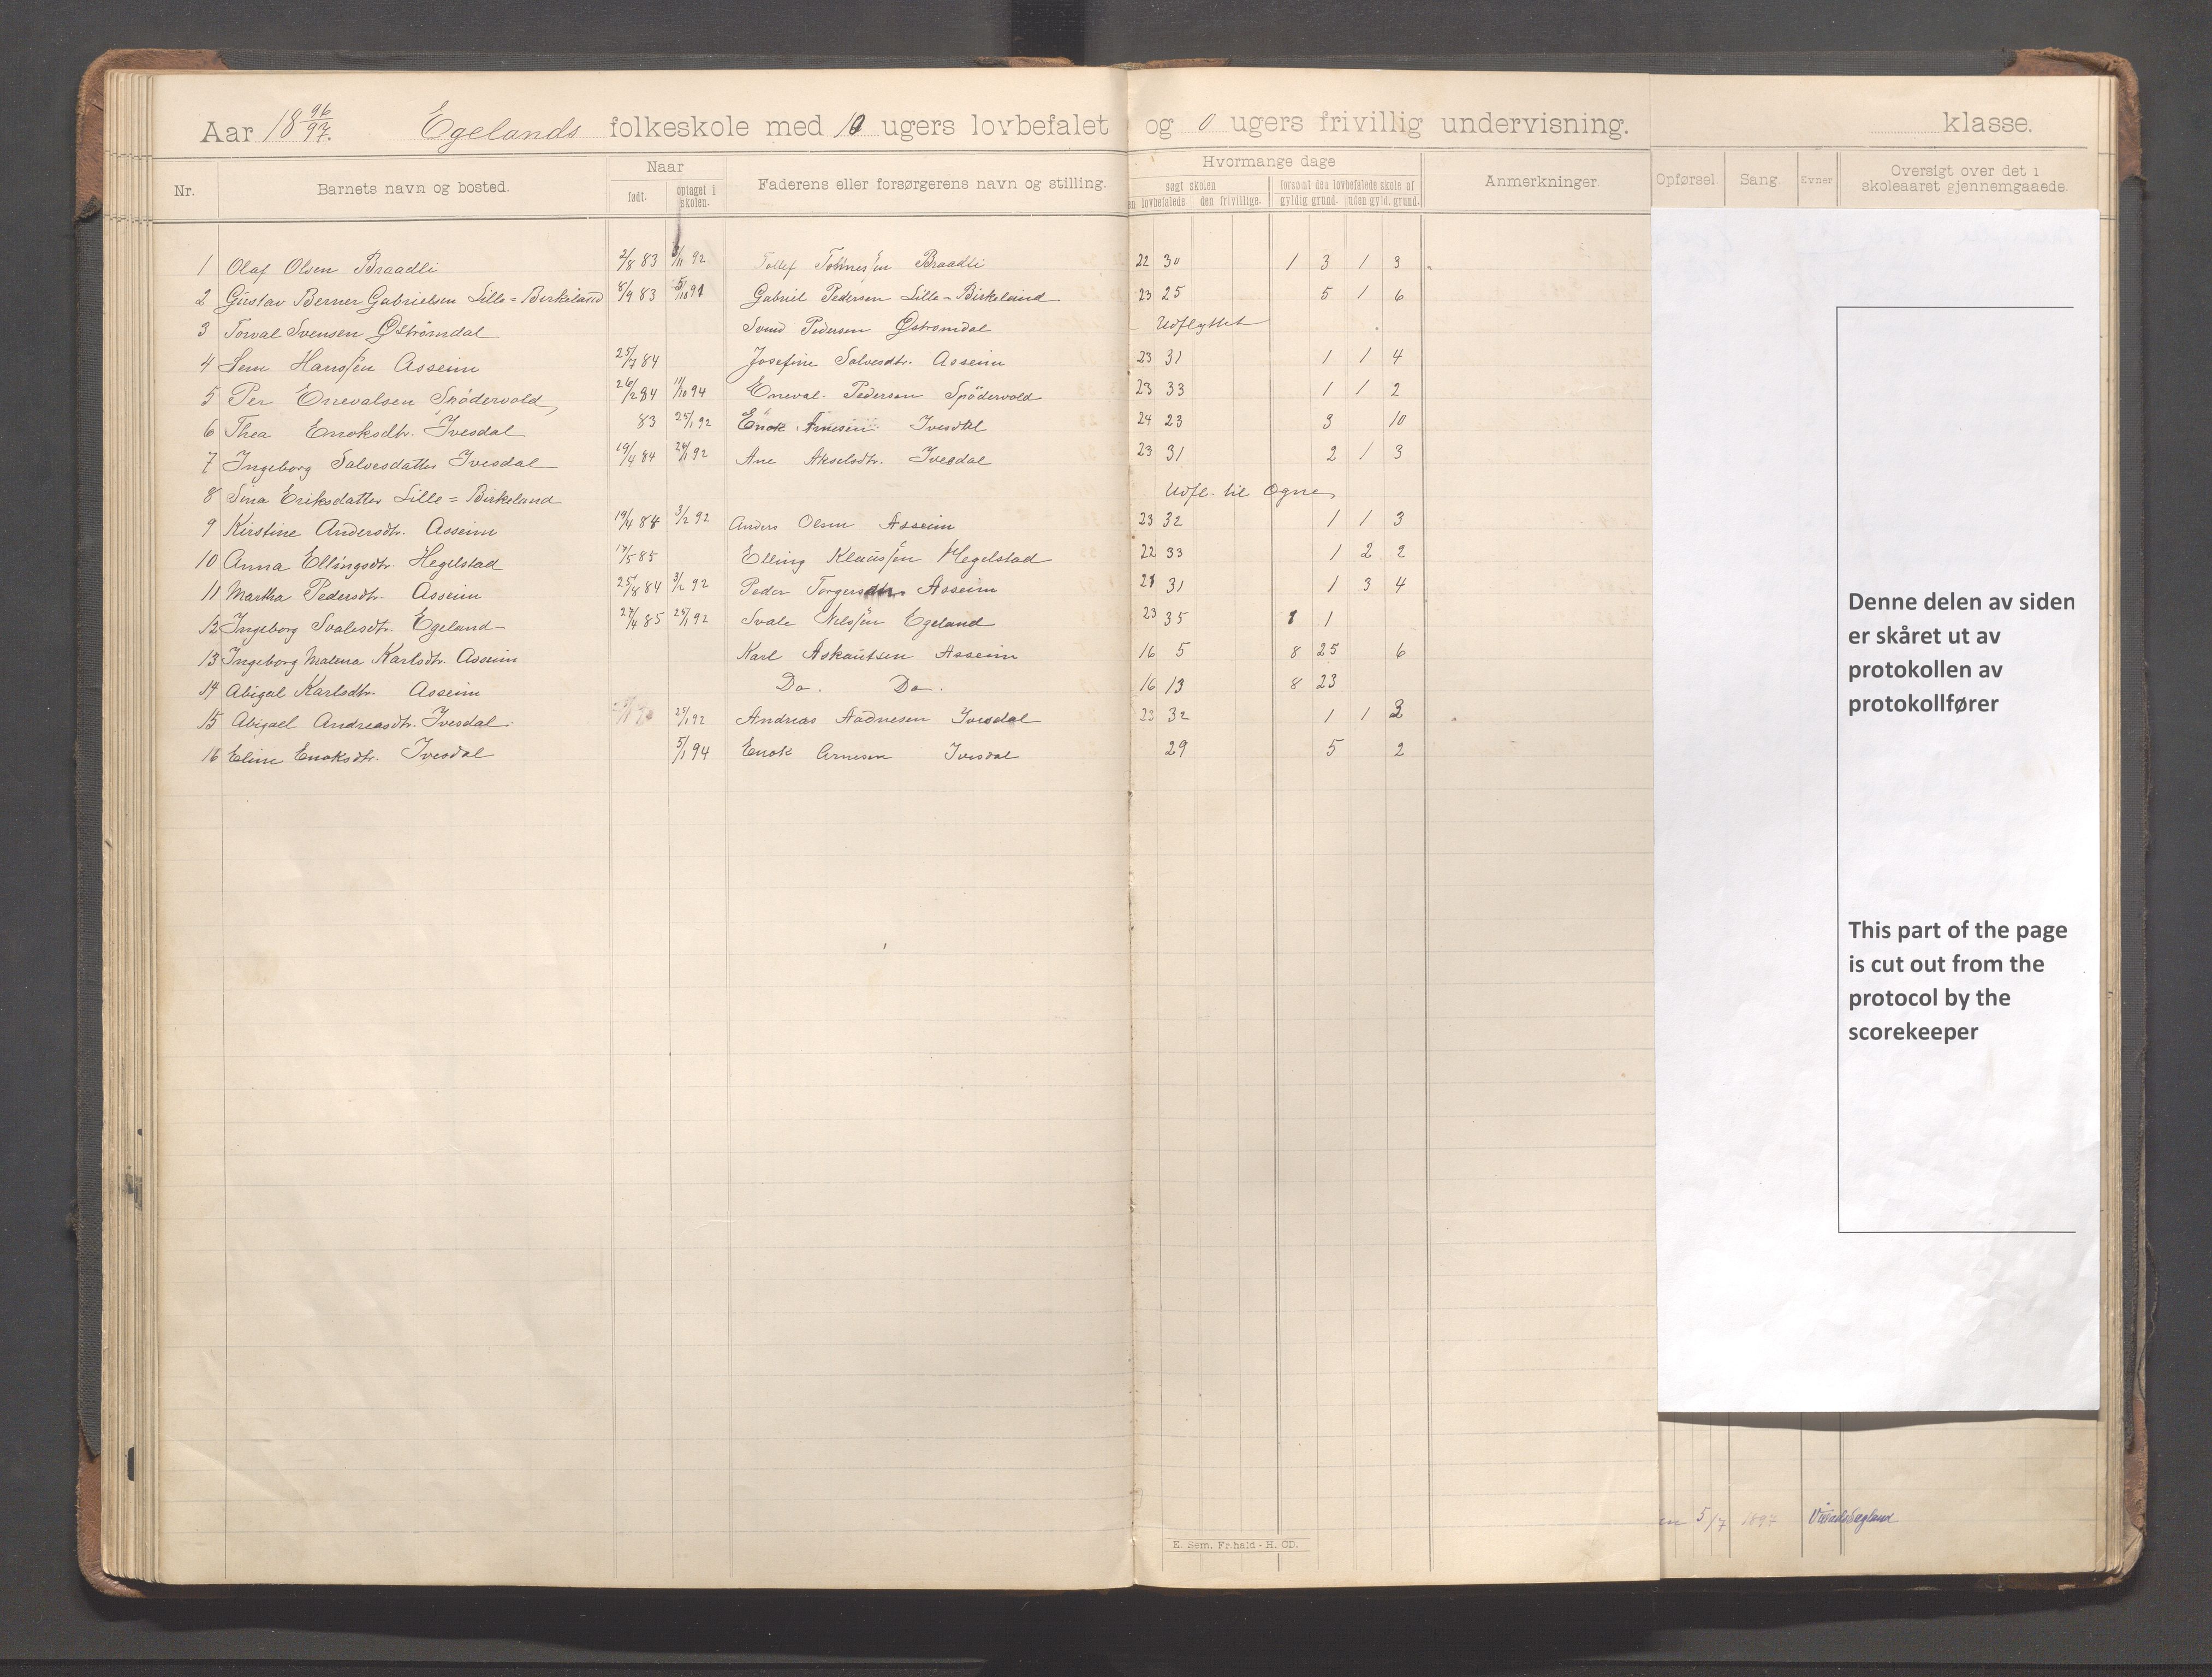 Aar 18 96/97. Egelands folkeskole med 10 ugers lovbefalet og 0 ugers frivillig undervisning. klasse.
Nr. Barnets navn og bosted. Naar født. optaget i skolen. Faderens eller forsørgerens navn og stilling. Hvormange dage søgt skolen den lovbefalede den frivillige. forsømt den lovbefalede skole af gyldig grund. uden gyld. grund. Anmerkninger. Opførsel. Sang. Evner Oversigt over det i skoleaaret gjennemgaaede.
1 Olaf Olsen Braadli 2/8 83 /11 92 Tollef Braadli 22 30 1 3 1 3
2 Gustav Berner Gabrielsen Lille=Birkeland 8/9 83 5/10 91 Gabriel Pedersen Lille-Birkeland 23 25 5 1 6
3 Torval Svensen Østrømdal Svend Pedersen Østrømdal Udflyttet
4 Sem Hanssen Asseim 25/7 84 Josefine Salvesdtr. Asseim 23 31 1 1 4
5 Per Enevalsen Spödervold 26/2 84 11/10 94 Eneval Pedersen Spödervold 23 33 1 1 2
6 Thea Enoksdtr. Ivesdal 83 25/1 92 Enok Arnesen Ivesdal 24 23 3 10
7 Ingeborg Salvesdatter Ivesdal 19/4 84 24/1 92 Ane Akselsdtr. Ivesdal 23 31 2 1 3
8 Sina Eriksdatter Lille=Birkeland Udfl. til Ogne
9 Kirstine Andersdtr. Asseim 19/4 84 3/2 92 Anders Olsen Asseim 23 32 1 1 3
10 Anna Ellingsdtr. Hegelstad 17/5 85 Elling Klaussen Hegelstad 22 33 1 2 2
11 Martha Pedersdtr. Asseim 25/8 84 3/2 92 Peder Asseim 21 31 1 3 4
12 Ingeborg Svalesdtr. Egeland 27/4 85 25/1 92 Svale Nilssen Egeland 23 35 1 1
13 Ingeborg Malena Karlsdtr. Asseim Karl Askautsen Asseim 16 5 8 25 6
14 Abigal Karlsdtr. Asseim Do. Do. 16 13 8 23
15 Abigael Andreasdtr. Ivesdal 25/1 92 Andreas Aadnesen Ivesdal 23 32 1 1 3
16 Eline Enoksdtr. Ivesdal 5/1 94 Enok Arnesen Ivesdal 29 5 2
Denne delen av siden
er skåret ut av
protokollen av
protokollfører
This part of the page
is cut out from the
protocol by the
scorekeeper
5/7 1897
E. Sem. Fr.hald - H. CD.